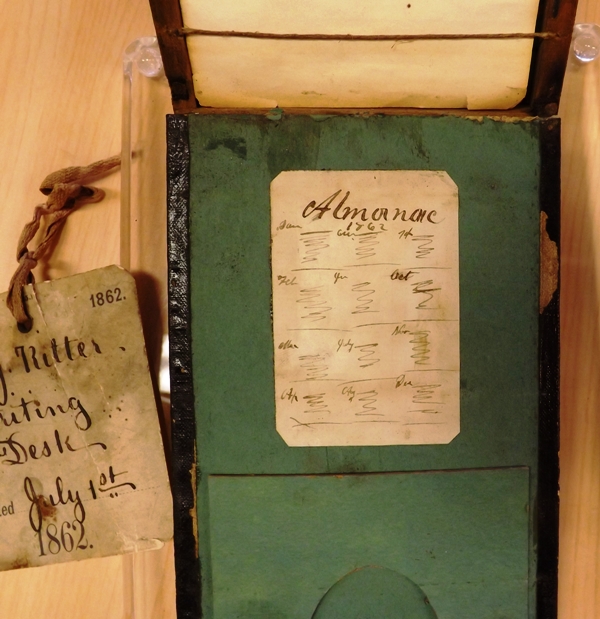 1862.
J. Ritter.
riting
Desk
ed July 1st
1862.
Almanac
1862
Jan
Feb Oct
Mar July Nov
Ap Dec